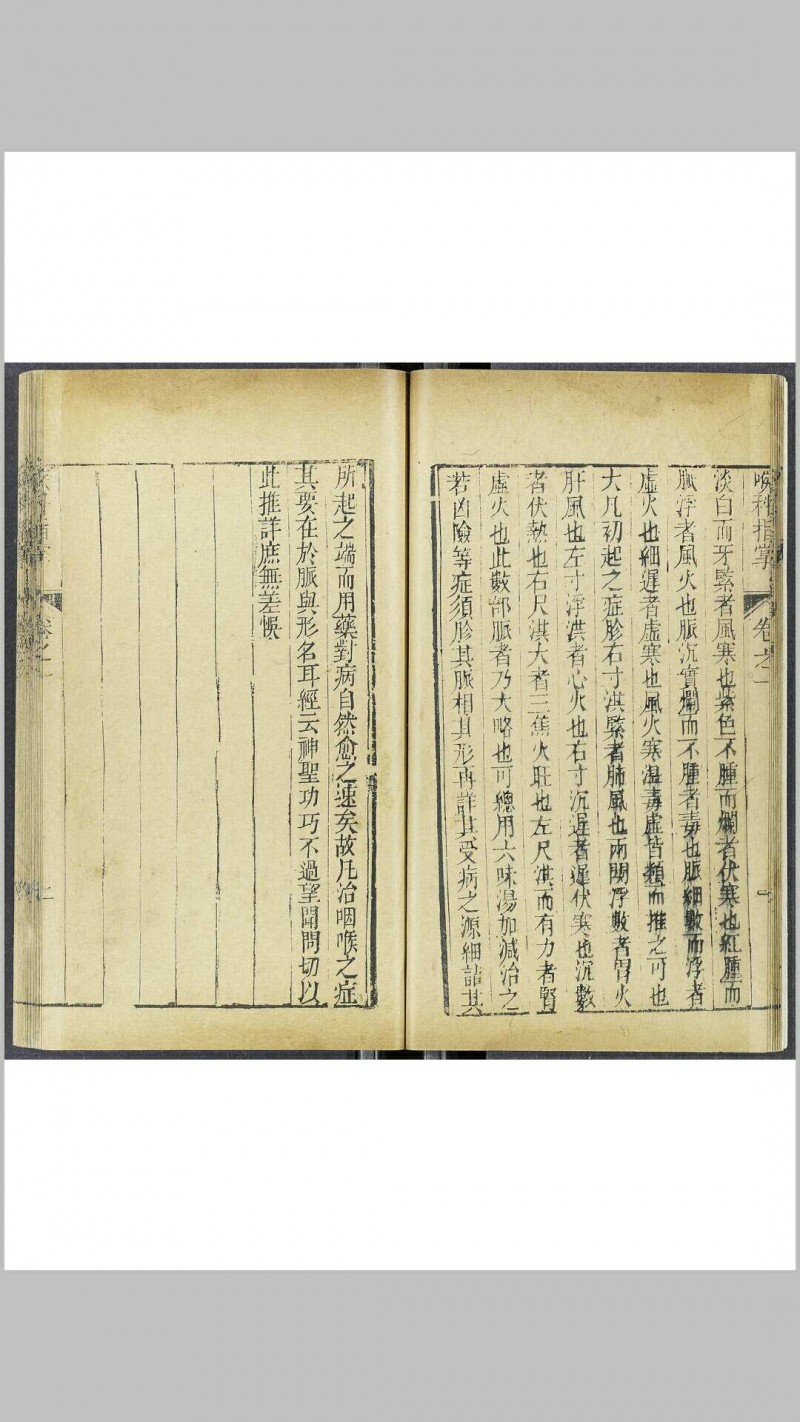 喉科指掌 卷之一
淡白而牙緊者風寒也紫色不腫而爛者伏寒也紅腫而
脈浮者風火也脈沉實爛而不腫者毒也脈細數而浮者
虛火也細遲者虛寒也風火寒濕毒虛皆類而推之可也
大凡初起之症胗右寸洪緊者肺風也兩関浮數者胃火
肝風也左寸浮洪者心火也右寸沉遲者遲伏寒也沉數
者伏熱也右尺洪大者三焦火旺也左尺洪而有力者腎
虛火也此數部脈者乃大略也可總用六味湯加減治之
若凶險等症須胗其脈相其形再詳其受病之源細詰其
所起之端而用藥對病自然愈之速矣故凡治咽喉之症
其要在於脈與形名耳經云神聖功巧不過望聞問切以
此推詳庶無差悞
卷之一